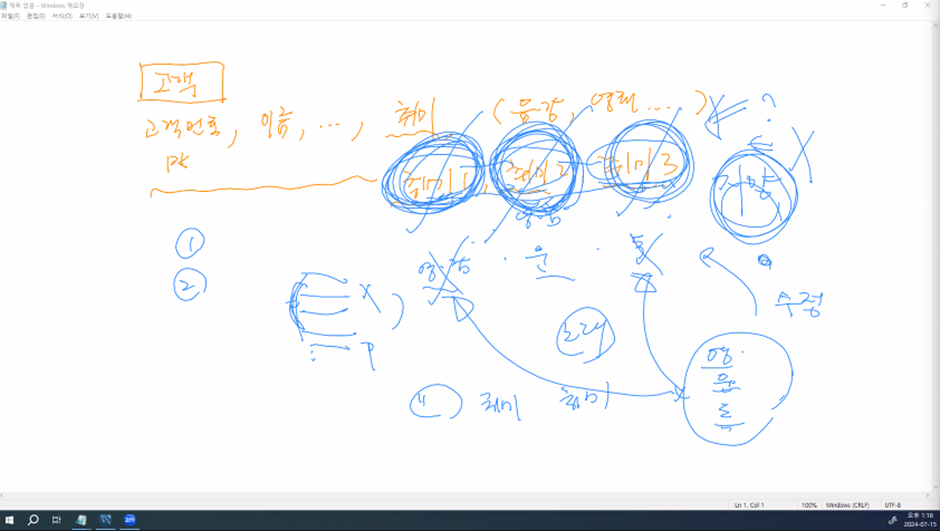 제목 없음 - Windows 메모장
파일(F) 편집(E) 서식(O) 보기(V) 도움말(H)
고객
고객번호, 이름, ..., 취미 ( 음감, 영화 ... ) ?
PK
취미1, 취미2 취미3 취향
①
영감 · 운 · 독
②
X
수정
P
노래
영·
운
독
" 취미 취미
Ln 1, Col 1 100% Windows (CRLF) UTF-8
오후 1:16
2024-07-15